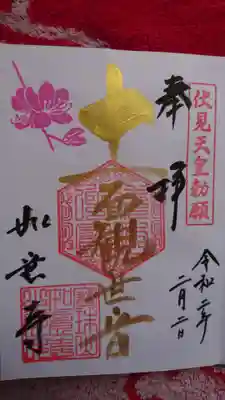 伏見天皇勅願
奉拝
令和二年
二月二日
十一面観世音
如意寺